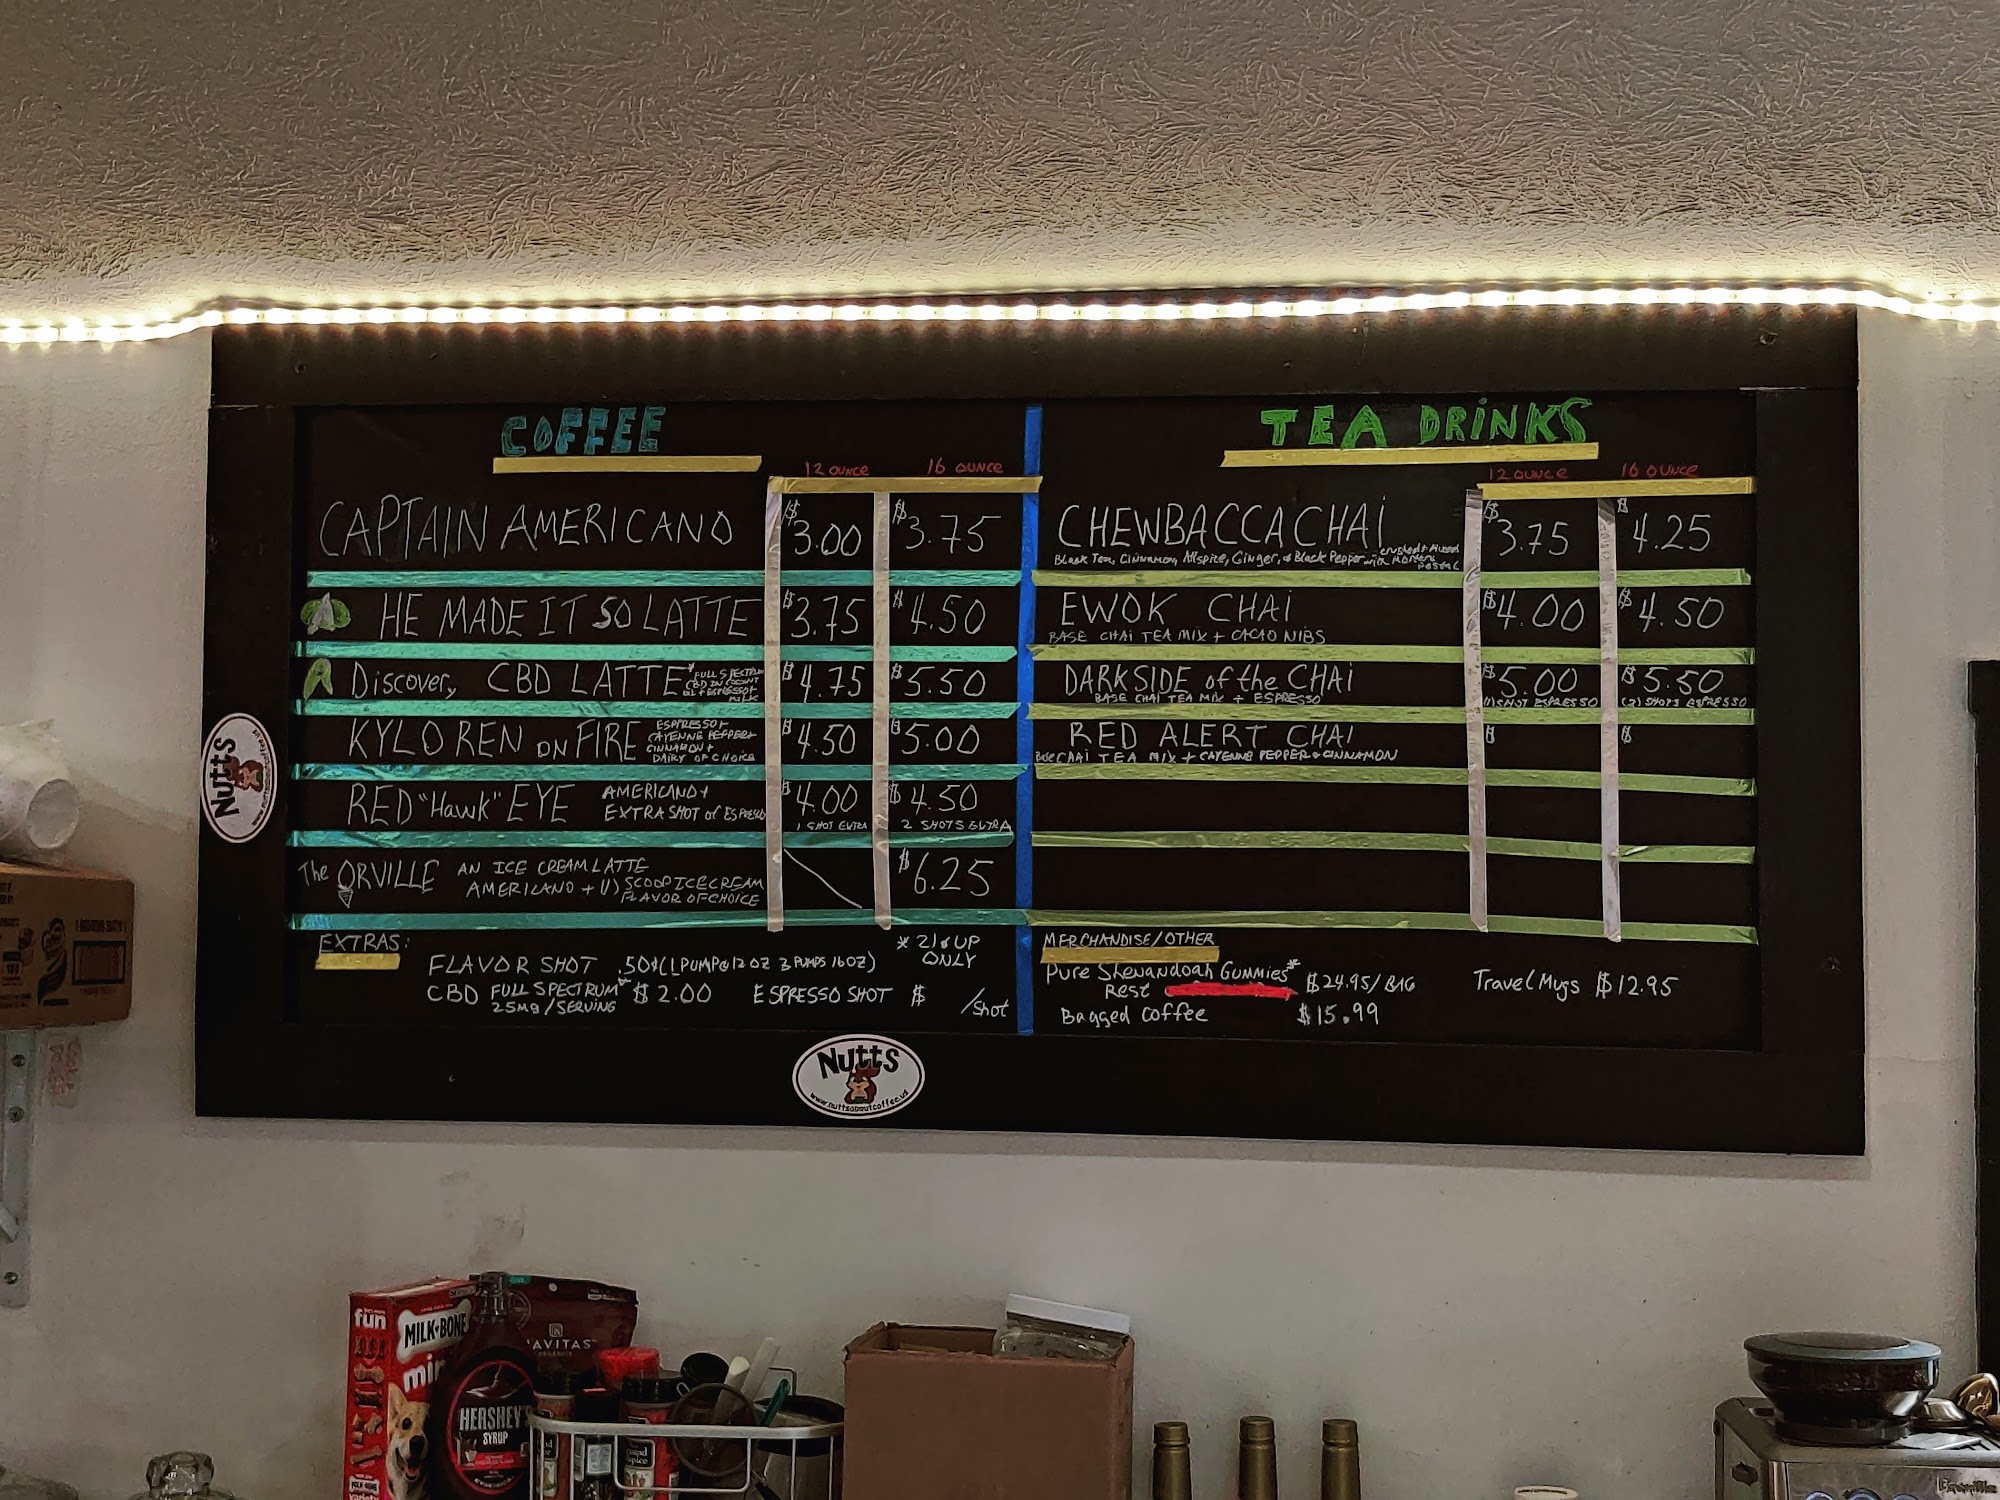 COFFEE
12 OUNCE 16 OUNCE
CAPTAIN AMERICANO $3.00 $3.75
HE MADE IT SO LATTE $3.75 $4.50
Discover, CBD LATTE* $4.75 $5.50
FULL SPECTRUM
CBD IN COCONUT
OIL + ESPRESSO +
MILK
KYLO REN ON FIRE $4.50 $5.00
ESPRESSO +
CAYENNE PEPPER +
CINNAMON +
DAIRY OF CHOICE
RED "Hawk" EYE $4.00 $4.50
AMERICANO +
EXTRA SHOT of ESPRESSO
1 SHOT EXTRA 2 SHOTS EXTRA
The ORVILLE $6.25
AN ICE CREAM LATTE
AMERICANO + (1) SCOOP ICE CREAM
FLAVOR OF CHOICE
EXTRAS:
* 21 & UP
ONLY
FLAVOR SHOT .50¢ (1 PUMP @ 12 OZ 3 PUMPS 16 OZ)
CBD FULL SPECTRUM* $2.00 ESPRESSO SHOT $ /Shot
25MG / SERVING
TEA DRINKS
12 OUNCE 16 OUNCE
CHEWBACCA CHAI $3.75 $4.25
Black Tea, Cinnamon, Allspice, Ginger, & Black Pepper - crushed + mixed
with mortar +
EWOK CHAI $4.00 $4.50
BASE CHAI TEA MIX + CACAO NIBS
DARKSIDE of the CHAI $5.00 $5.50
BASE CHAI TEA MIX + ESPRESSO (1) SHOT ESPRESSO (2) SHOTS ESPRESSO
RED ALERT CHAI $ $
BASE CHAI TEA MIX + CAYENNE PEPPER + CINNAMON
MERCHANDISE/OTHER
Pure Shenandoah Gummies*
REST $24.95/BAG Travel Mugs $12.95
Bagged Coffee $15.99
Nutts
Nutts
www.nuttsaboutcoffee.us
fun
MILK-BONE
mini
NAVITAS
HERSHEY'S
SYRUP
variety